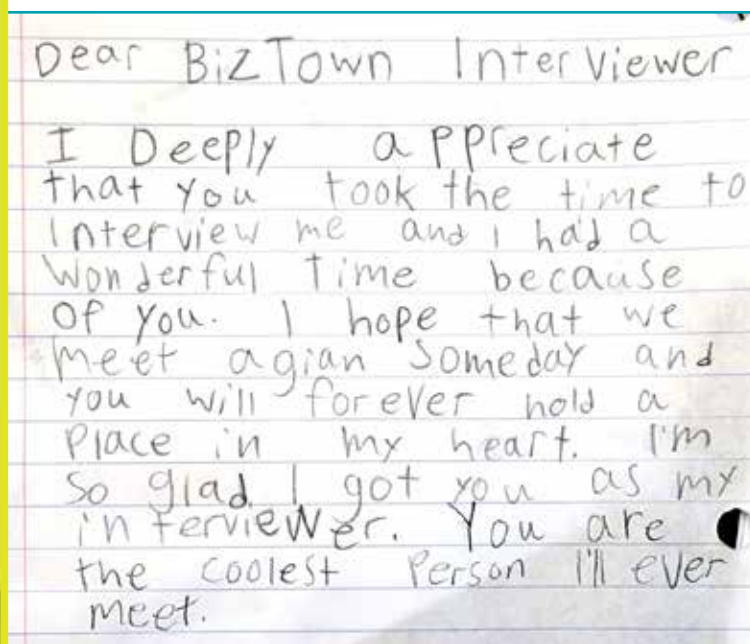 Dear BizTown Interviewer
I Deeply appreciate
that you took the time to
Interview me and I had a
Wonderful Time because
Of you. I hope that we
meet agian Someday and
you will forever hold a
Place in my heart. I'm
So glad I got you as my
interviewer. You are
the coolest Person I'll ever
meet.